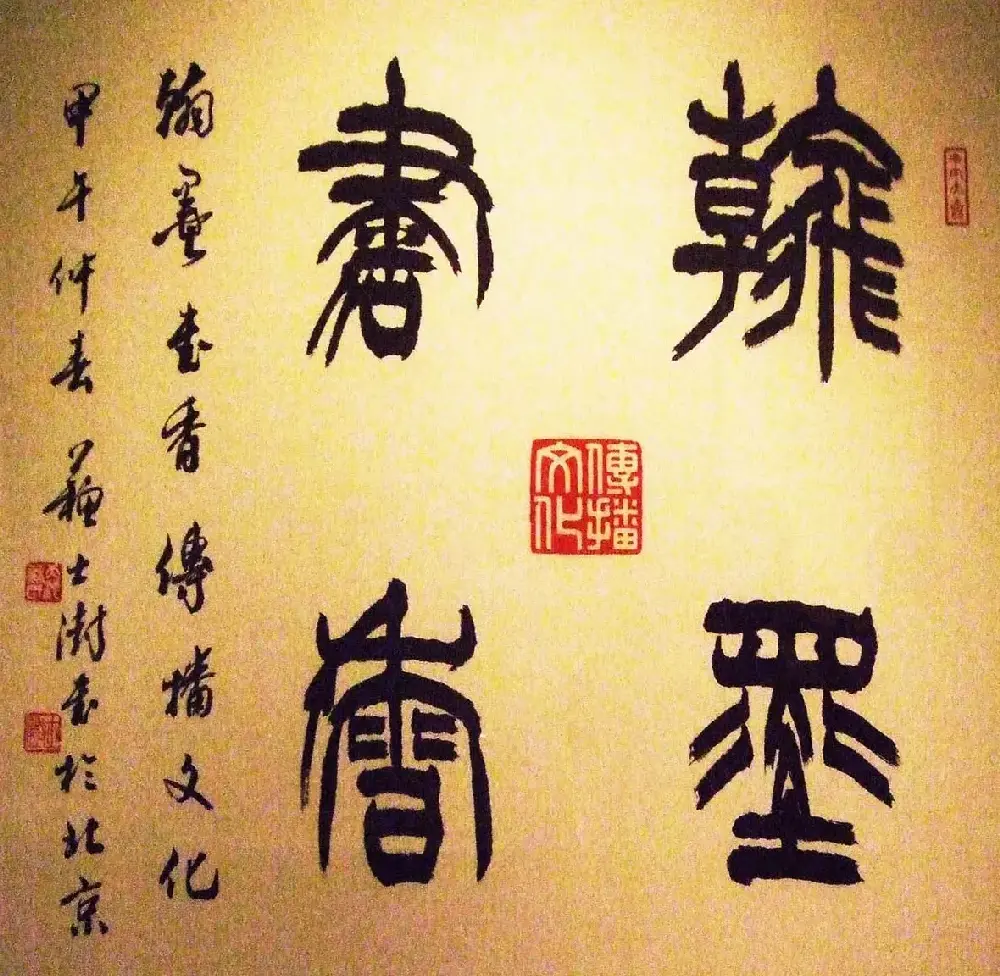 翰墨
書香
傳播
文化
翰墨书香傳播文化
甲午仲春苏士澍书於北京